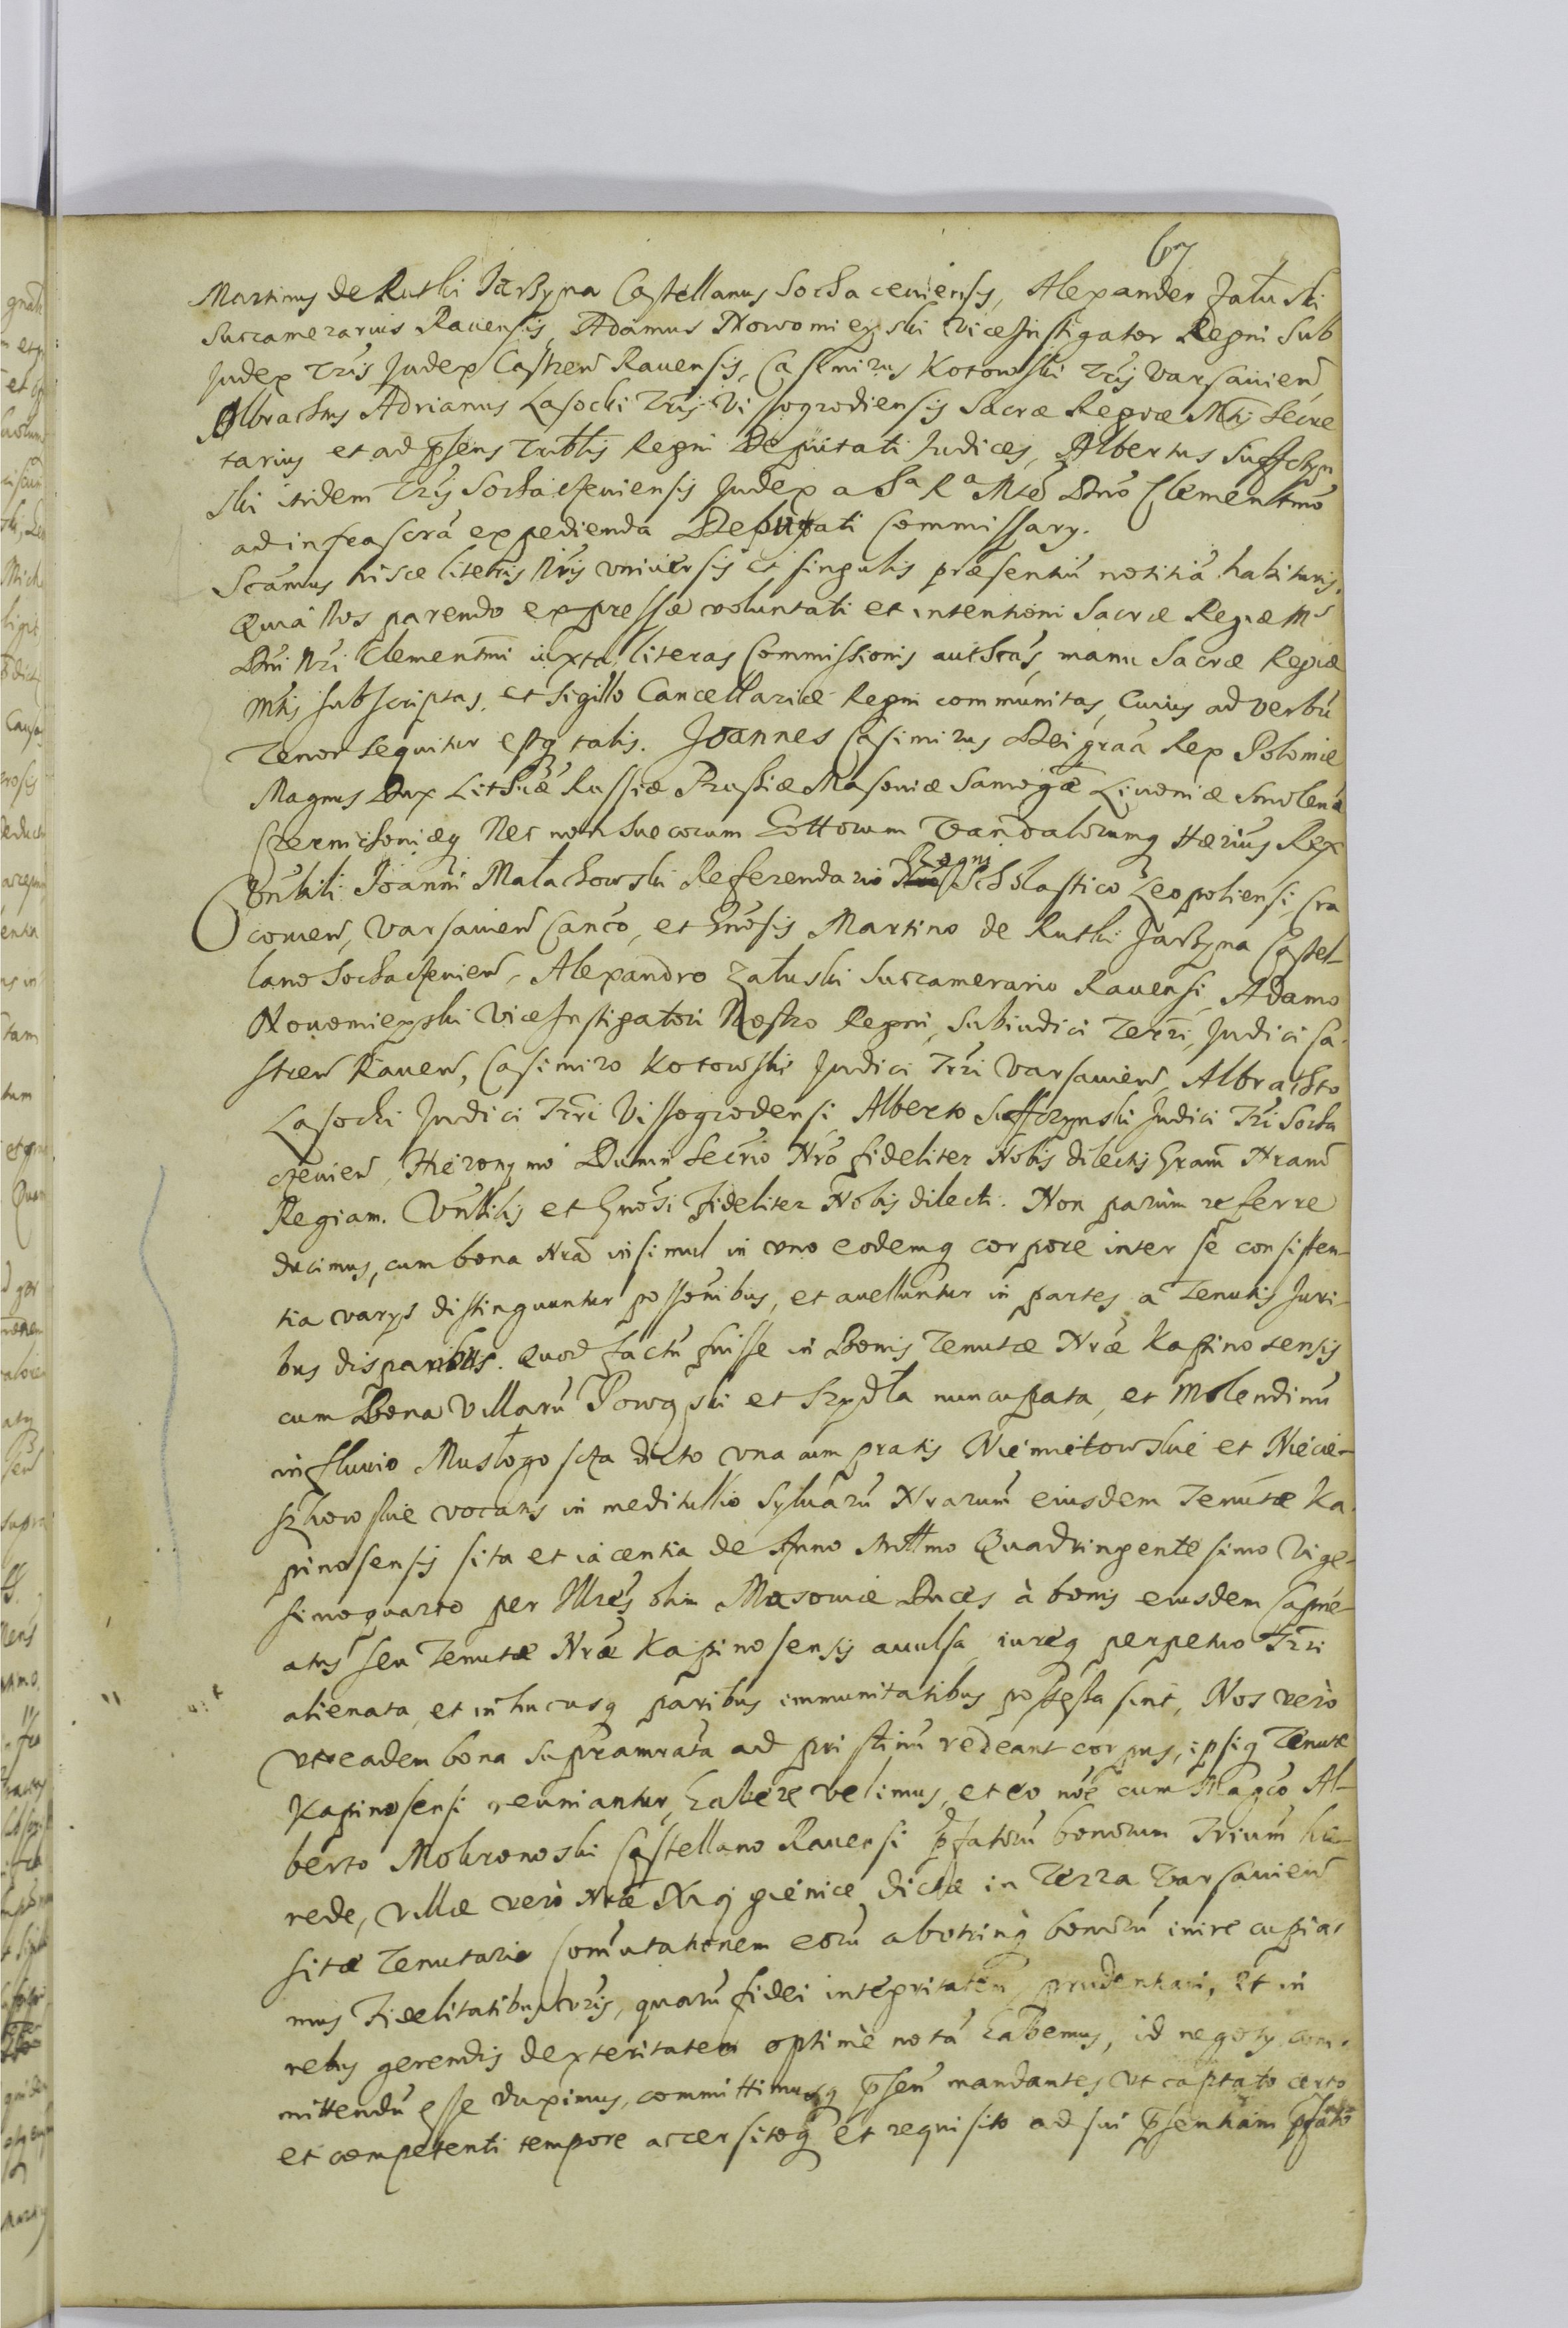 67
Martinus de Rutki Jarzyna Castellanus Sochaceuiensis, Alexander Załuski
Succamerarius Rauensis, Adamus Nowomieyski ViceInstigator Regni Sub
Judex Trris Judex Castren̄ Rauensis, Casimirus Kotowski Trris Varsauien̄,
Albrachtus Adrianus Lasocki Trris Vissogrodiensis Sacræ Regiæ Mttis Secre
tarius et ad p̄sens Trib̄lis Regni Deputati Judices, Albertus Suffczyn
ski itidem Trris Sochaczeuiensis Judex a Sa Ra Mtte Dn̄o Clementmo
ad infrascra expedienda Deputati Commissary.
Scāmus hisce literis Nr̄is vniuersis et singulis præsentiū notitiā habituris.
Quia Nos parendo expressæ voluntati et intentioni Sacræ Regiæ Ms
Dn̄i Nr̄i Clementmi iuxta literas Commissionis autcas, manu Sacræ Regiæ
Mttis subscriptas, et sigillo Cancellariæ Regni communitas, Cuius ad verbū
tenor sequitur estq talis. Joannes Casimirus Dei gr̄aa Rex Poloniæ
Magnus Dux Lithuæ Russiæ Prussiæ Masouiæ Samogæ Liuoniæ Smolenæ
Czernichouiæq Nec non Suecorum Gottorum Vandalorumq Hærius Rex
Vn̄bili Joanni Małachowski Referendario Regni Scholastico Leopoliensi, Cra
couien̄, Varsauien̄ Canco, et Gn̄osis Martino de Rutki Jarzyna Castel-
lano Sochaczeuien̄, Alexandro Załuski Succamerario Rauensi, Adamo
Nouomieyski ViceInstigatori Nostro Regni, Subiudici Terri, Judici Ca-
stren̄ Rauen̄, Casimiro Kotowski Judici Trri Varsauien̄, Albrachto
Lasocki Judici Trri Vissogrodensi, Alberto Suffczynski Judici Tri Socha
czeuien̄, Hieronymo Dunin Secrio Nr̄o fideliter Nobis dilectis Gram̄ Nram̄
Regiam. Vn̄bilis et Gn̄osi Fideliter Nobis dilecti. Non parùm referre
ducimus, cum bona Nra insimul in vno eodemq corpore inter se consisten-
tia varys distinguuntur possoni̅bus, et auelluntur in partes a Tenutis Juri-
bus disparibus. Quod factū fuisse in Bonis Tenutæ Nræ Kapinosensis
cum Bona Villarū Powązki et Szydła nuncupata, et Molendinū
in fluuio dicto vna cum pratis Niemietowskie et Niecie-
szkowskie vocatis in meditullio Syluarū Nrarum eiusdem Tenutæ Ka-
pinosensis sita et iacentia de Anno Mllmo Quadringentesimo Vige-
simoquarto per Illres olim Masouiæ Duces à bonis eiusdem Capne-
atus seu Tenutæ Nræ Kapinosensis auulsa, iureq perpetuo Trri
alienata, et in hucusq paribus immunitatibus possessa sint, Nos verò
vt eadem bona supramrata ad pristinū redeant corpus, ipsiq Tenutæ
Kapinosensi reuniantur, habere velimus, et eo noe cum Magco Al-
berto Mokronoski Castellano Rauensi p̄fatorū bonorum Trium hæ-
rede, villæ verò Nræ dictæ in Terra Varsauien̄
sitæ Tenutario Com̄utationem eorū abutrinq bonorū inire cupia-
mus Fidelitatibus vr̄is, quarū fidei integritatem, prudentiam, et in
rebus gerendis dexteritatem optimè notā habemus, id negoty com-
mittendū esse duximus, committimusq p̄sen̄ mandantes, vt captato certo
et competenti tempore accersitoq et requisito ad sui p̄sentiam p̄fato